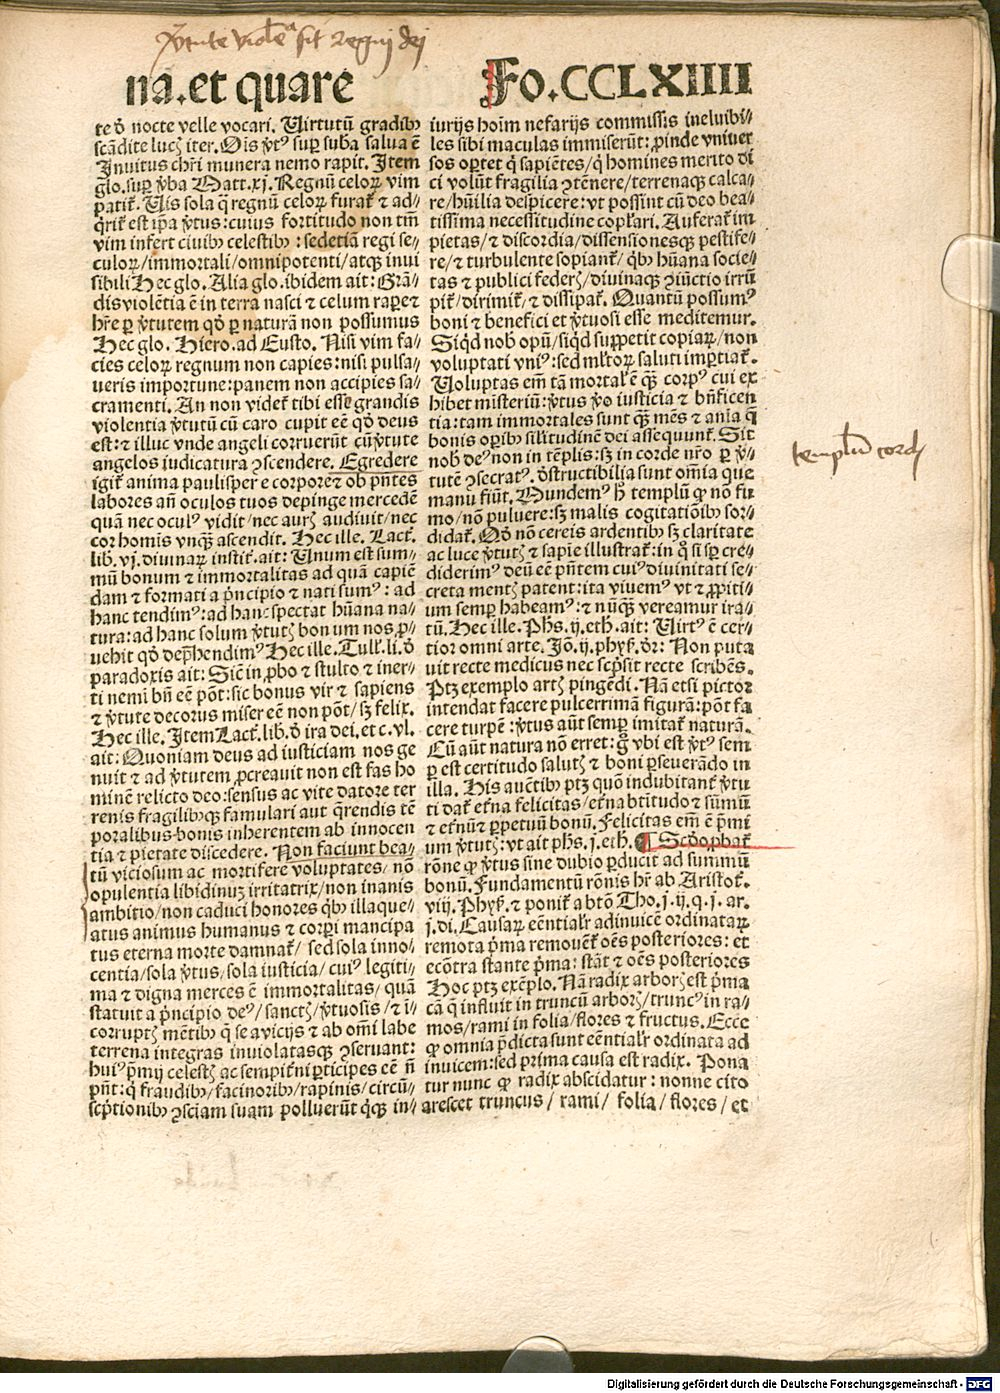 na.et quare
Fo.CCLXIIII
te ď nocte velle vocari. Uirtutū gradibꝰ
scādite lucꝭ iter. Oīs v̓tꝰ suꝑ suba salua ē
Inuitus chr̄i munera nemo rapit. Item
glo.suꝑ v̓ba Matt.xj. Regnū celoꝝ vim
patit᷑. Uis sola q̄ regnū celoꝝ furat᷑ ⁊ ad-
q̄rit᷑ est ip̄a v̓tus: cuius fortitudo non tm̄
vim infert ciuibꝰ celestibꝰ: sedetiā regi se-
culoꝝ/immortali/omnipotenti/atqꝫ inui
sibili Hec glo. Alia glo.ibidem ait: Grā-
dis violētia ē in terra nasci ⁊ celum raꝑe ⁊
hr̄e ꝑ v̓tutem qď ꝑ naturā non possumus
Hec glo. Hiero.ad Eusto. Nisi vim fa-
cies celoꝝ regnum non capies: nisi pulsa-
ueris importune: panem non accipies sa-
cramenti. An non videt᷑ tibi esse grandis
violentia v̓tutū cū caro cupit eē qď deus
est: ⁊ illuc vnde angeli corruerūt cū v̓tute
angelos iudicatura ꝯscendere. Egredere
igit᷑ anima paulisper e corpore ⁊ ob pn̄tes
labores an̄ oculos tuos depinge mercedē
quā nec oculꝰ vidit/nec aurꝭ audiuit/nec
cor homis vnqꝫ ascendit. Hec ille. Lact.
lib. vj. diuinaꝝ instit᷑.ait: Unum est sum-
mū bonum ⁊ immortalitas ad quā capiē
dam ⁊ formati a p̄ncipio ⁊ nati sumꝰ: ad
hanc tendimꝰ: ad hanc spectat hūana na-
tura: ad hanc solum v̓tutꝭ bonum nos ꝓ-
uehit qď dep̄hendimꝰ Hec ille. Tull᷑.li.ď
paradoxis ait: Sic̄ in ꝓbo ⁊ stulto ⁊ iner-
ti nemi bn̄ eē pōt: sic bonus vir ⁊ sapiens
⁊ v̓tute decorus miser eē non pōt/sꝫ felix.
Hec ille. Item Lact᷑. lib. ď ira dei. et c. vl.
ait: Quoniam deus ad iusticiam nos ge
nuit ⁊ ad v̓tutem ꝓcreauit non est fas ho
minē relicto deo: sensus ac vite datore ter
renis fragilibusqꝫ famulari aut q̄rendis tē
poralibus bonis inherentem ab innocen
tia ⁊ pietate discedere. Non faciunt bea-
tū viciosum ac mortifere voluptates/nō
opulentia libidinuꝫ irritatrix/non inanis
ambitio/non caduci honores qbꝰ illaque-
atus animus humanus ⁊ corpori mancipa
tus eterna morte damnat᷑/sed sola inno-
centia/sola v̓tus/sola iusticia/cuiꝰ legiti-
ma ⁊ digna merces ē immortalitas/quā
statuit a p̄ncipio deꝰ/sanctꝭ/v̓tuosis/⁊ ī-
corruptꝭ mētibꝰ q̄ se a vicijs ⁊ ab om̄i labe
terrena integras inuiolatasqꝫ ꝯseruant:
huiꝰ p̄mij celestꝭ ac sempit᷑ni ꝑticipes eē n̄
pn̄t: q̄ fraudibꝰ/facinoribꝰ/rapinis/circū-
scp̄tionibꝰ ꝯsciam suam polluerūt q̄qꝫ in-
iurijs hoīm nefarijs commissis ineluibi-
les sibi maculas immiserūt: ꝓinde vniuer
sos oꝑtet q̄ sapiētes/q̄ homines merito di
ci volūt fragilia ꝯtēnere/terrenaqꝫ calca-
re/hūilia despicere: vt possint cū deo bea-
tissima necessitudine copl̄ari. Auferat᷑ im
pietas/⁊ discordia/dissensionesqꝫ pestife-
re/⁊ turbulente sopiant᷑/qbꝰ hūana socie-
tas ⁊ publici federꝭ/diuinaqꝫ ꝯiūctio irrū
pit᷑/dirimit᷑/⁊ dissipat᷑. Quantū possumꝰ
boni ⁊ benefici et v̓tuosi esse meditemur.
Siqd nob opū/siqd suppetit copiaꝝ/non
voluptati vniꝰ: sed ml̓toꝝ saluti imꝑtiat᷑.
Uoluptas em̄ tā mortal᷑ ē qꝫ corpꝰ cui ex
hibet misteriū: v̓tus v̓o iusticia ⁊ bn̄ficen
tia: tam immortales sunt qꝫ mēs ⁊ anīa q̄
bonis oꝑibꝰ sil̓itudinē dei assequunt᷑. Sit
nob deꝰ non in tēplis: sꝫ in corde nr̄o ꝑ v̓-
tutē ꝯsecratꝰ. ďstructibilia sunt om̄ia que
manu fiūt. Mundemꝰ h̓ templū qď nō fu
mo/nō puluere: sꝫ malis cogitatiōibꝰ sor-
didat᷑. Qď nō cereis ardentibꝰ sꝫ claritate
ac luce v̓tutꝭ ⁊ sapīe illustrat᷑: in q̊ si sꝑ cre-
diderimꝰ deū eē pn̄tem cuiꝰ diuinitati se-
creta mentꝭ patent: ita viuemꝰ vt ⁊ ꝓpiti-
um semꝑ habeamꝰ: ⁊ nūqꝫ vereamur ira-
tū. Hec ille. Phs. ij. eth. ait: Uirtꝰ ē cer-
tior omni arte. Iō. ij. phys̄. dr̄: Non puta
uit recte medicus nec scp̄sit recte scribēs.
Ptꝫ exemplo artꝭ pingēdi. Nā etsi pictor
intendat facere pulcerrimā figurā: pōt fa
cere turpē: v̓tus aūt semꝑ imitat᷑ naturā.
Cū aūt natura nō erret: g̊ vbi est v̓tꝰ sem
ꝑ est certitudo salutꝭ ⁊ boni ꝑseuerādo in
illa. His auctibꝰ ptꝫ quō indubitant᷑ v̓tu
ti dat᷑ et᷑na felicitas/et᷑na btitudo ⁊ sūmū
⁊ et᷑nū ⁊ ꝑpetuū bonū. Felicitas em̄ ē p̄mi
um v̓tutꝭ: vt ait phs. j. eth. ¶ Scďo ꝓbat᷑
rōne qď v̓tus sine dubio ꝑducit ad summū
bonū. Fundamentū rōnis hr̄ ab Aristot᷑.
viij. Phys̄. ⁊ ponit᷑ a btō Tho. j. ij. q. j. ar.
j. di. Causaꝝ eēntial̓r adinuicē ordinataꝝ
remota p̄ma remouent᷑ oēs posteriores: et
ecōtra stante p̄ma: stāt ⁊ oēs posteriores
Hoc ptꝫ exēplo. Nā radix arborꝭ est p̄ma
cā q̄ influit in truncū arborꝭ/truncꝰ in ra-
mos/rami in folia/flores ⁊ fructus. Ecce
qď omnia p̄dicta sunt eēntial̓r ordinata ad
inuicem: sed prima causa est radix. Pona
tur nunc qď radix abscidatur: nonne cito
arescet truncus/rami/folia/flores/et
templū cordꝭ
Digitalisierung gefördert durch die Deutsche Forschungsgemeinschaft - DFG